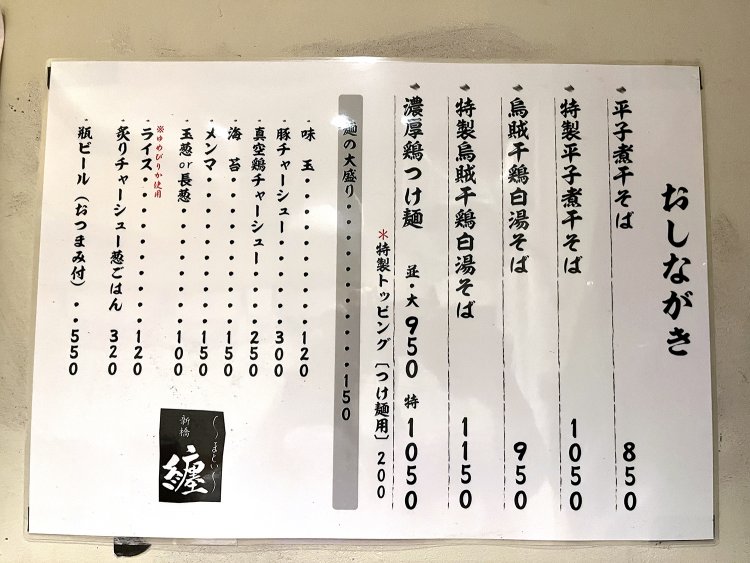 おしながき
平子煮干そば 850
特製平子煮干そば 1050
烏賊干鶏白湯そば 950
特製烏賊干鶏白湯そば 1150
濃厚鶏つけ麺 並・大950 特1050
※特製トッピング〔つけ麺用〕200
麺の大盛り・・・・・・・・・・150
味 玉・・・・・・・・120
豚チャーシュー・・・・300
真空鶏チャーシュー・・・250
海 苔・・・・・・・・150
メンマ・・・・・・・・150
玉葱or長葱・・・・・・100
※ゆめぴりか使用
ライス・・・・・・・・120
炙りチャーシュー葱ごはん 320
瓶ビール(おつまみ付)・・550
新橋
纏
〜まとい〜